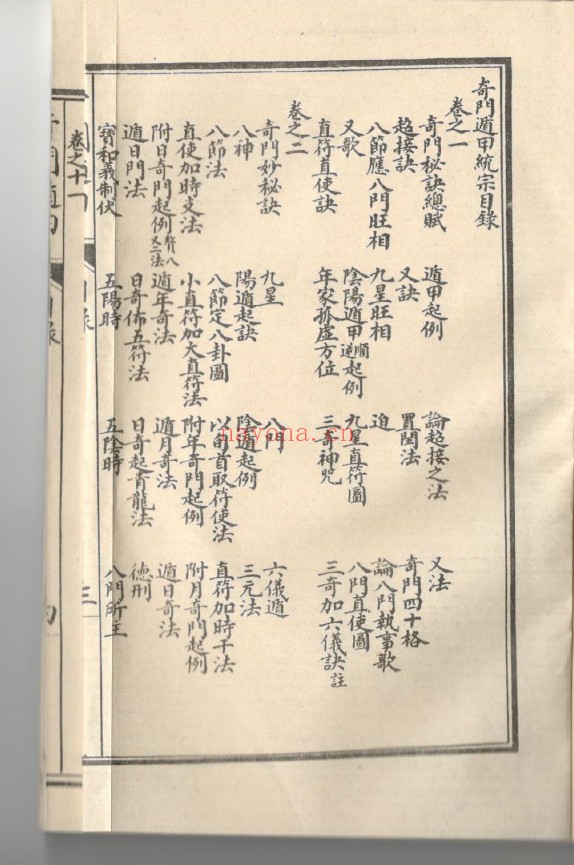 奇門遁甲統宗目錄
卷之一
奇門秘訣總賦 遁甲起例 論超接之法 又法
超接訣 又訣 置閏法 奇門四十格
八節應八門旺相 九星旺相 迫 論八門執事歌
又歌 陰陽遁甲順逆起例 九星直符圖 八門直使圖
直符直使訣 年家孤虛方位 三奇神咒 三奇加六儀訣註
卷之二
奇門妙秘訣 九星 八門 六儀遁
八神 陽遁起訣 陰遁起例 三元法
八節法 八節定八卦圖 以旬首取符使法 直符加時干法
直使加時支法 小直符加大直符法 附年奇門起例 附月奇門起例
附日奇門起例 遁年奇法 遁月奇法 遁日奇法
遁日門法 日奇佈五符法 日奇起青龍法 德刑
寶和義制伏 五陽時 五陰時 八門所主
三
卷之十一
nayona.cn